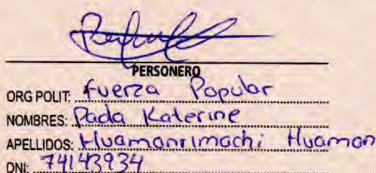 PERSONERO
ORG POLIT: Fuerza Popular
NOMBRES: Pada Katerine
APELLIDOS: Huamanrimachi Huaman
DNI: 74143934